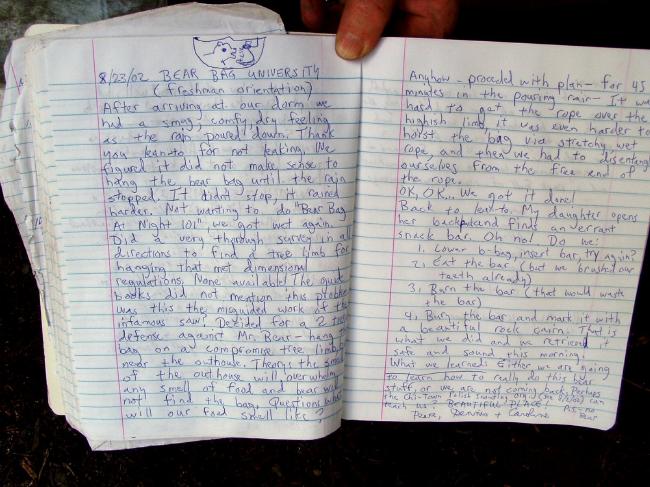 8/23/02 BEAR BAG UNIVERSITY
(freshman orientation)
After arriving at our dorm we
had a smug, comfy, dry feeling
as the rain poured down. Thank
you lean-to for not leaking. We
figured it did not make sense to
hang the bear bag until the rain
stopped. It didn't stop, it rained
harder. Not wanting to do "Bear Bag
At Night 101", we got wet again.
Did a very thorough survey in all
directions to find a tree limb for
hanging that met dimensional
regulations. None available! The guide
books did not mention this problem
was this the misguided work of the
infamous saw? Decided for a 2 tier
defense against Mr. Bear - hang
bag on a compromise tree limb,
near the outhouse. Theory: the smell
of the outhouse will overwhelm
any smell of food and bear will
not find the bag. Question: what
will our food smell like?
Anyhow - proceeded with plan - for 45
minutes in the pouring rain - It was
hard to get the rope over the
highish limb, it was even harder to
hoist the bag via stretchy wet
rope, and then we had to disentangle
ourselves from the free end of
the rope.
OK, OK... We got it done!
Back to lean-to. My daughter opens
her backpack and finds an errant
snack bar. Oh no! Do we:
1. Lower b-bag, insert bar, try again?
2. Eat the bar (but we brushed our
teeth already)
3. Burn the bar (that would waste
the bar)
4. Bury the bar and mark it with
a beautiful rock cairn. That is
what we did and we retrieved it
safe and sound this morning.
What we learned: Either we are going
to learn how to really do this bear
stuff or we are not coming back. Perhaps
the Chi-Town Polish
teach us? BEAUTIFUL PLACE!
Peace, + Caroline
P.S. - no
bear